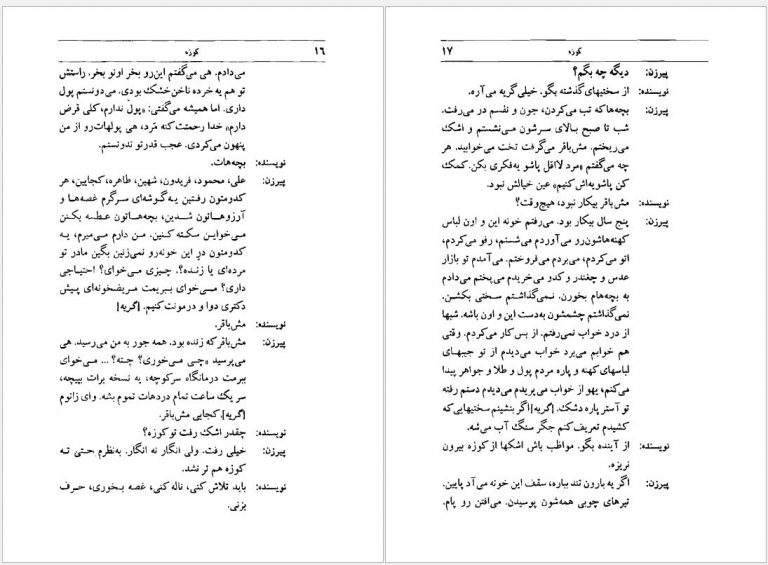 ۱۶ کوزه
می‌دادم. هی می‌گفتم این‌رو بخر اونو بخر. راستش
تو هم یه خرده ناخن‌خشک بودی. می‌دونسنم پول
داری. اما همیشه می‌گفتی: «پول ندارم، کلی قرض
دارم» خدا رحمتت کنه مَرد، هی پولهات‌رو از من
پنهون می‌کردی. عجب قدرتو ندونسنم.
نویسنده: بچه‌هات.
پیرزن: علی، محمود، فریدون، شهین، طاهره، کجایین، هر
کدومتون رفتین یه‌گوشه‌ای سرگرم غصه‌ها و
آرزوهاتون شدین، بچه‌هاتون عطسه بکنن
می‌خواین سکته کنین. من دارم می‌میرم، یه
کدومتون درِ این خونه‌رو نمی‌زنین بگین مادر تو
مرده‌ای یا زنده؟ چیزی می‌خوای؟ احتیاجی
داری؟ می‌خوای ببریمت مریضخونه‌ای پیش
دکتری دوا و درمونت کنیم. [گریه]
نویسنده: مش‌باقر.
پیرزن: مش‌باقر که زنده بود. همه جور به من می‌رسید. هی
می‌پرسید «چی می‌خوری؟ چته؟ ... می‌خوای
ببرمت درمانگاه سرکوچه، یه نسخه برات بپیچه،
سر یک ساعت تمام دردهات تموم بشه. وای زانوم
[گریه]. کجایی مش‌باقر.
نویسنده: چقدر اشک رفت تو کوزه؟
پیرزن: خیلی رفت. ولی انگار نه انگار. به‌نظرم حتی ته
کوزه هم تر نشد.
نویسنده: باید تلاش کنی، ناله کنی، غصه بخوری، حرف
بزنی.
کوزه ۱۷
پیرزن: دیگه چه بگم؟
نویسنده: از سختیهای‌گذشته بگو. خیلی‌گریه می‌آره.
پیرزن: بچه‌ها که تب می‌کردن، جون و نفسم در می‌رفت.
شب تا صبح بالای سرشون می‌نشستم و اشک
می‌ریختم. مش‌باقر می‌گرفت تخت می‌خوابید. هر
چه می‌گفتم «مرد لااقل پاشو یه‌فکری بکن. کمک
کن پاشویه‌اش کنیم» عین خیالش نبود.
نویسنده: مش‌باقر بیکار نبود، هیچ‌وقت؟
پیرزن: پنج سال بیکار بود. می‌رفتم خونه این و اون لباس
کهنه‌هاشون‌رو می‌آوردم می‌شستم، رفو می‌کردم،
اتو می‌کردم، می‌بردم می‌فروختم. می‌آمدم تو بازار
عدس و چغندر و کدو می‌خریدم می‌پختم می‌دادم
به بچه‌هام بخورن. نمی‌گذاشتم سختی بکشن.
نمی‌گذاشتم چشمشون به‌دست این و اون باشه. شبها
از درد خواب نمی‌رفتم. از بس کار می‌کردم. وقتی
هم خوابم می‌برد خواب می‌دیدم از تو جیبهای
لباسهای کهنه و پاره مردم پول و طلا و جواهر پیدا
می‌کنم، یهو از خواب می‌پریدم می‌دیدم دستم رفته
تو آستر پاره دشک. [گریه] اگر بنشینم سختیهایی که
کشیدم تعریف‌کنم جگر سنگ آب می‌شه.
نویسنده: از آینده بگو. مواظب باش اشکها از کوزه بیرون
نریزه.
پیرزن: اگر یه بارون تند بباره، سقف این خونه می‌آد پایین.
تیرهای چوبی همه‌شون پوسیدن. می‌افتن رو پام.